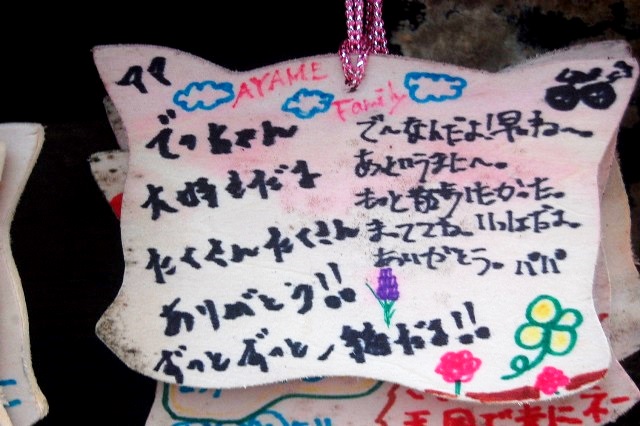 ママ
AYAME
Family
でっちさん
大好きだよ
たくさんたくさん
ありがとう!!
ずっとずっと一緒だよ!!
で〜なんだよ!早いね〜
あっというまに〜。
もっと散歩したかった。
まててね。いっしょだよ。
ありがとう。パパ